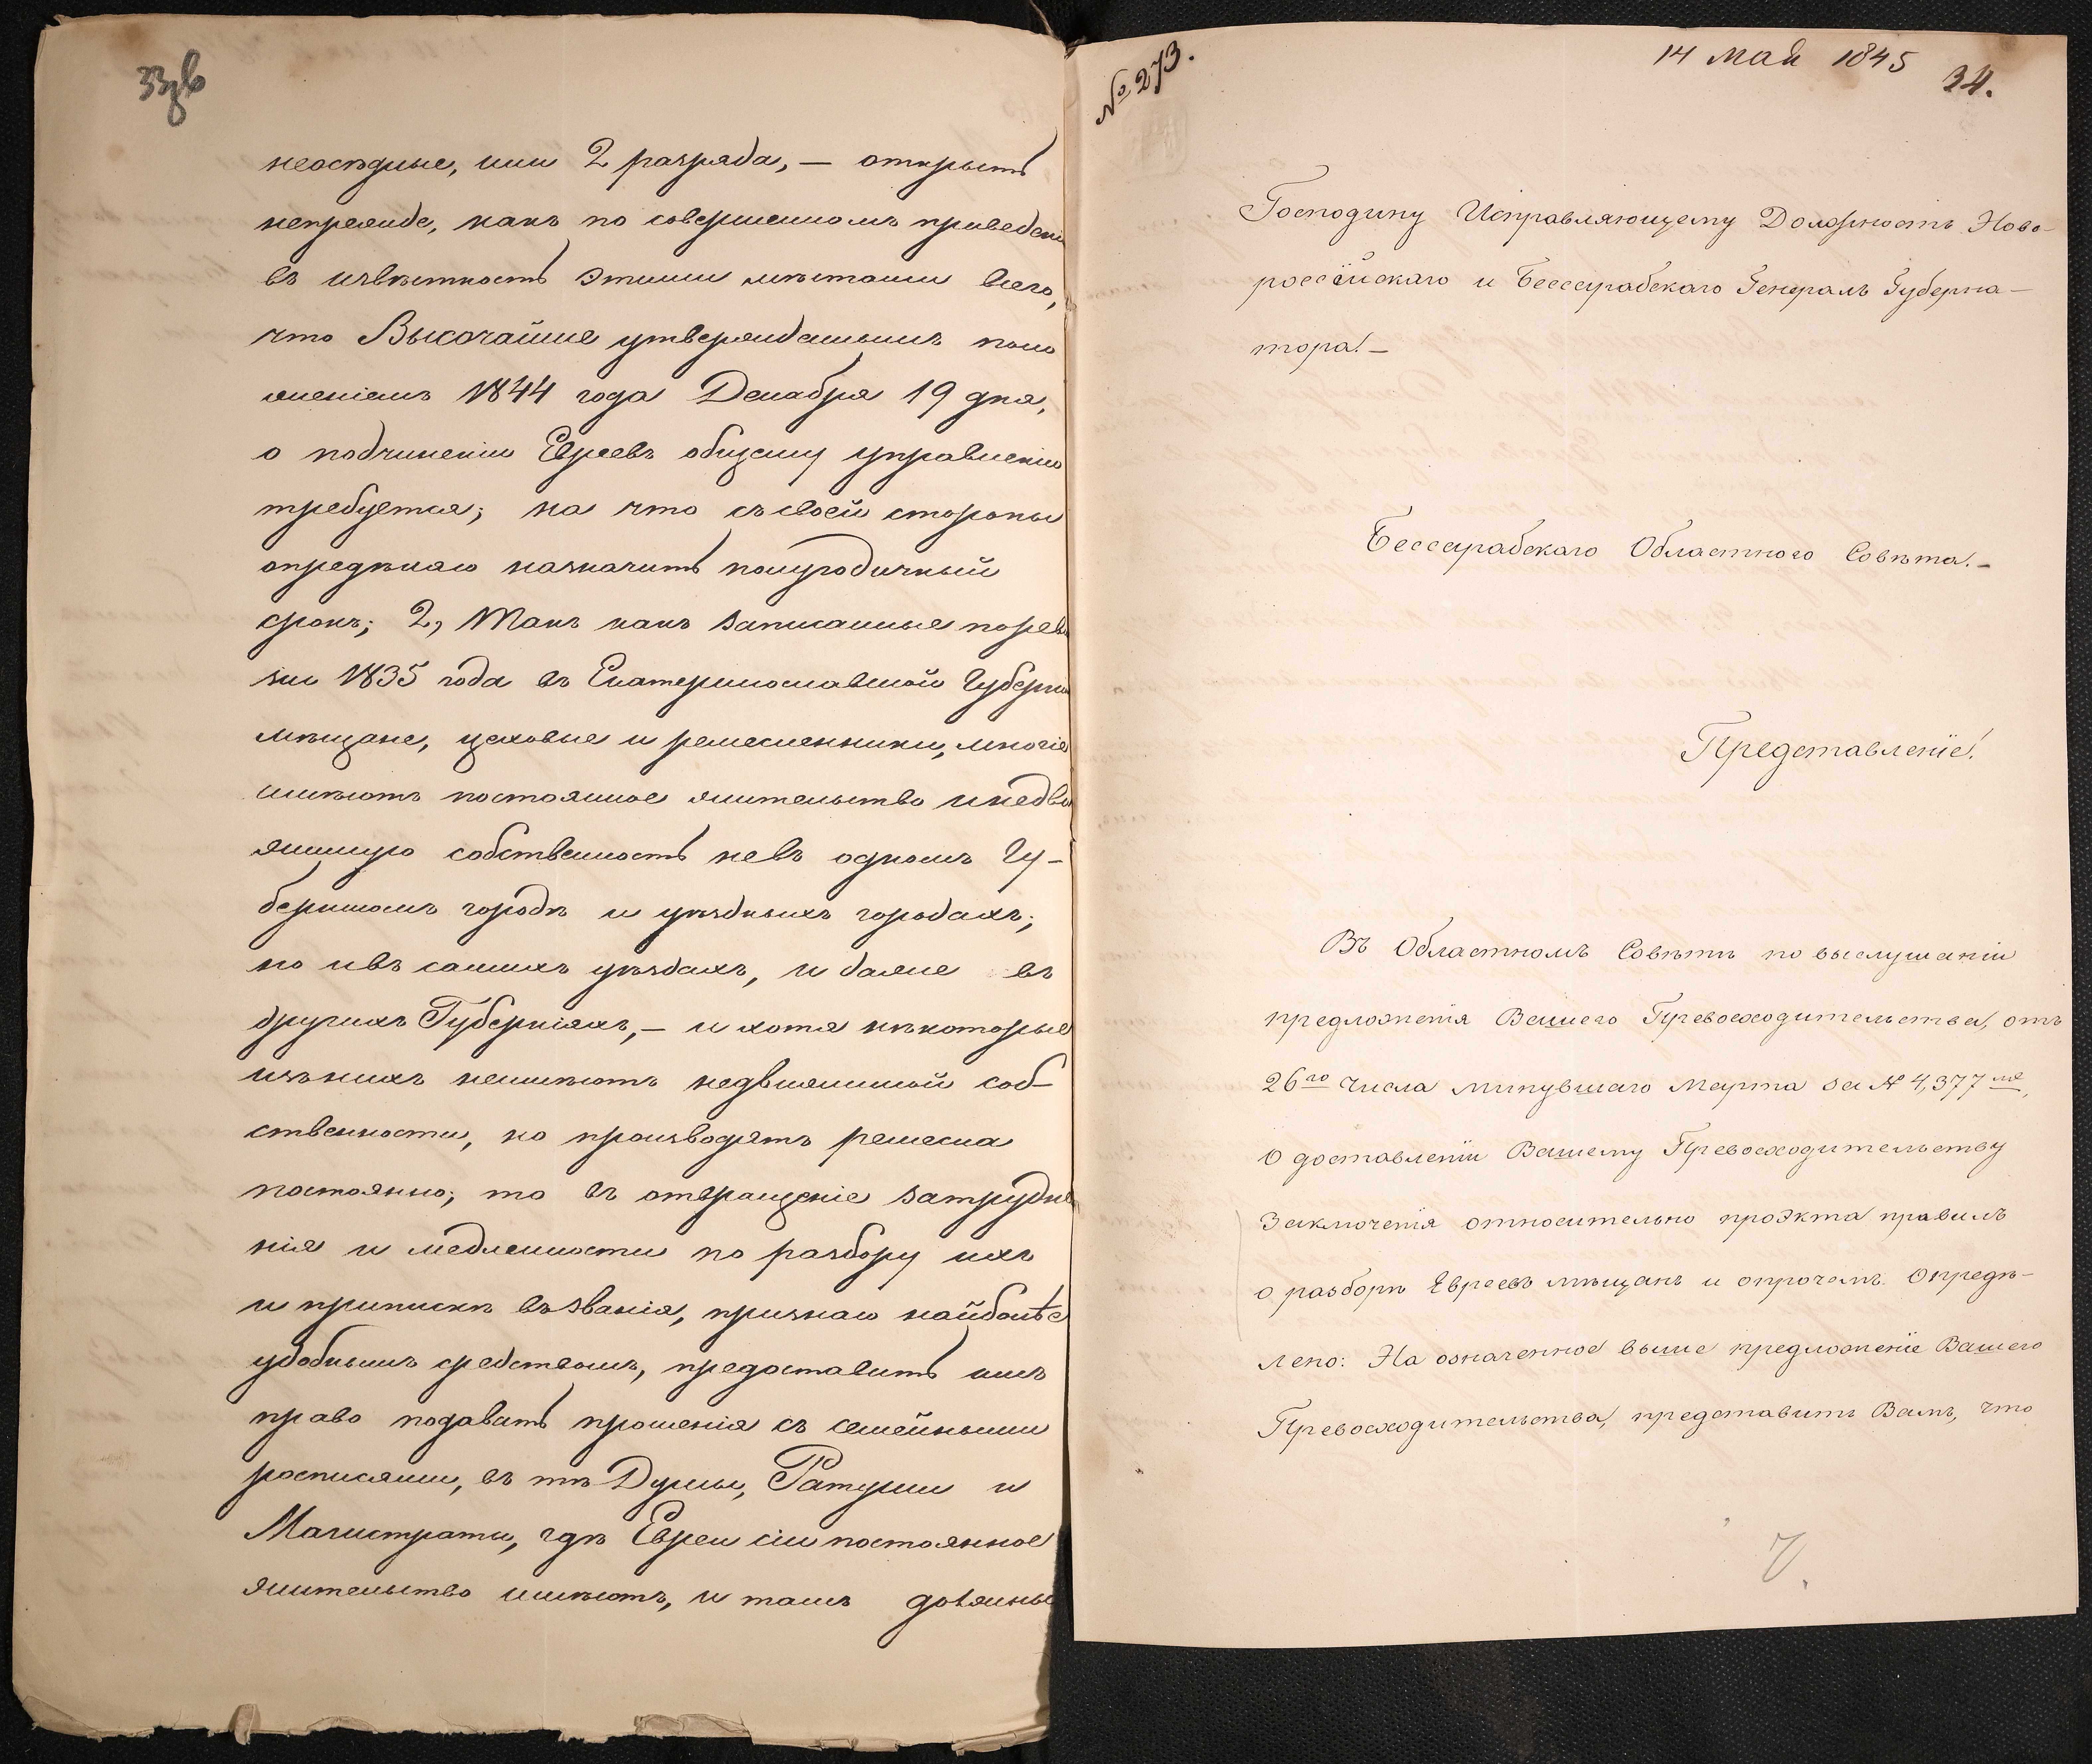 33об
неоседлые, или 2 разряда, — открыть
непрежде, какъ по совершенномъ приведенiи
въ извѣстность этими мѣстами всего,
что Высочайше утвержденнымъ поло
женiемъ 1844 года Декабря 19 дня,
о подчиненiи Евреевъ общему управленiю
требуется; на что съ своей стороны
опредѣляю назначить полугодичный
срокъ; 2, Такъ какъ записанные по реви
зiи 1835 года въ Екатеринославской Губернiи
мѣщане, цеховые и ремесленники, многiе
имѣютъ постоянное жительство и недви
жимую собственность не въ одномъ Гу-
бернскомъ городѣ и уѣздныхъ городахъ;
но и въ самихъ уѣздахъ, и даже въ
другихъ Губернiяхъ, — и хотя нѣкоторые
изъ нихъ неимѣютъ недвижимой соб-
ственности, но производятъ ремесла
постоянно; то въ отвращенiе затрудне
нiя и медленности по разбору ихъ
и припискѣ въ званiя, признаю найболѣе
удобнымъ средствомъ, предоставить имъ
право подавать прошенiя съ семейными
росписями, въ тѣ Думы, Ратуши и
Магистраты, гдѣ Евреи сiи постоянное
жительство имѣютъ, и тамъ должны
№ 273.
14 Мая 1845
34.
Господину Исправляющему Должность Ново-
россiйскаго и Бессарабскаго Генералъ Губерна-
тора. —
Бессарабскаго Областного Совѣта. —
Представленiе.
Въ Областномъ Совѣтѣ по выслушанiи
предложенiя Вашего Превосходительства, отъ
26го числа минувшаго Марта за № 4,377мъ,
о доставленiи Вашему Превосходительству
заключенiя относительно проэкта правилъ
о разборѣ Евреевъ мѣщанъ и опрочемъ. Опредѣ-
лено: На означенное выше предложенiе Вашего
Превосходительства, представить Вамъ, что